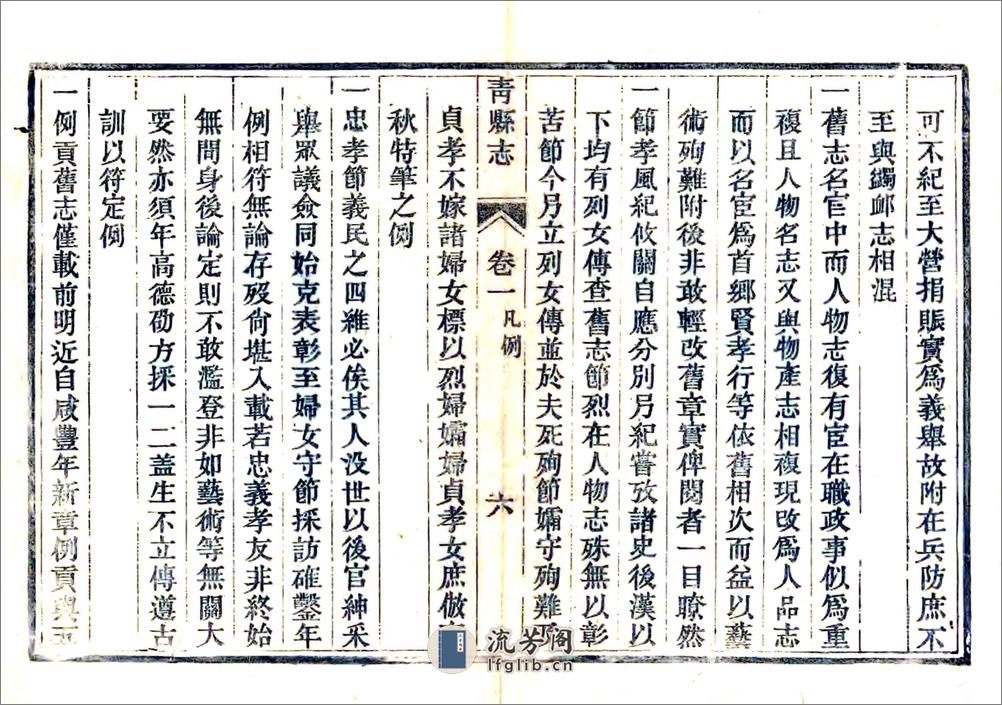 可不紀至大營捐賑實爲義舉故附在兵防庶不
至與蠲邮志相混
一舊志名宦中而人物志復有宦在職政事似爲重
複且人物名志又與物產志相複現改爲人品志
而以名宦爲首鄉賢孝行等依舊相次而益以藝
術殉難附後非敢輕改舊章實俾閱者一目瞭然
一節孝風紀攸關自應分別另紀嘗攷諸史後漢以
下均有列女傳查舊志節烈在人物志殊無以彰
苦節今另立列女傳並於夫死殉節孀守殉難
青縣志
卷一
凡例
六
貞孝不嫁諸婦女標以烈婦孀婦貞孝女庶倣
秋特筆之例
一忠孝節義民之四維必俟其人没世以後官紳采
舉眾議僉同始克表彰至婦女守節採訪確鑿年
例相符無論存歿尙堪入載若忠義孝友非終始
無間身後論定則不敢濫登非如藝術等無關大
要然亦須年高德劭方採一二蓋生不立傳遵古
訓以符定例
一例貢舊志僅載前明近自咸豐年新章例貢與五
流芳阁
lfglib.cn